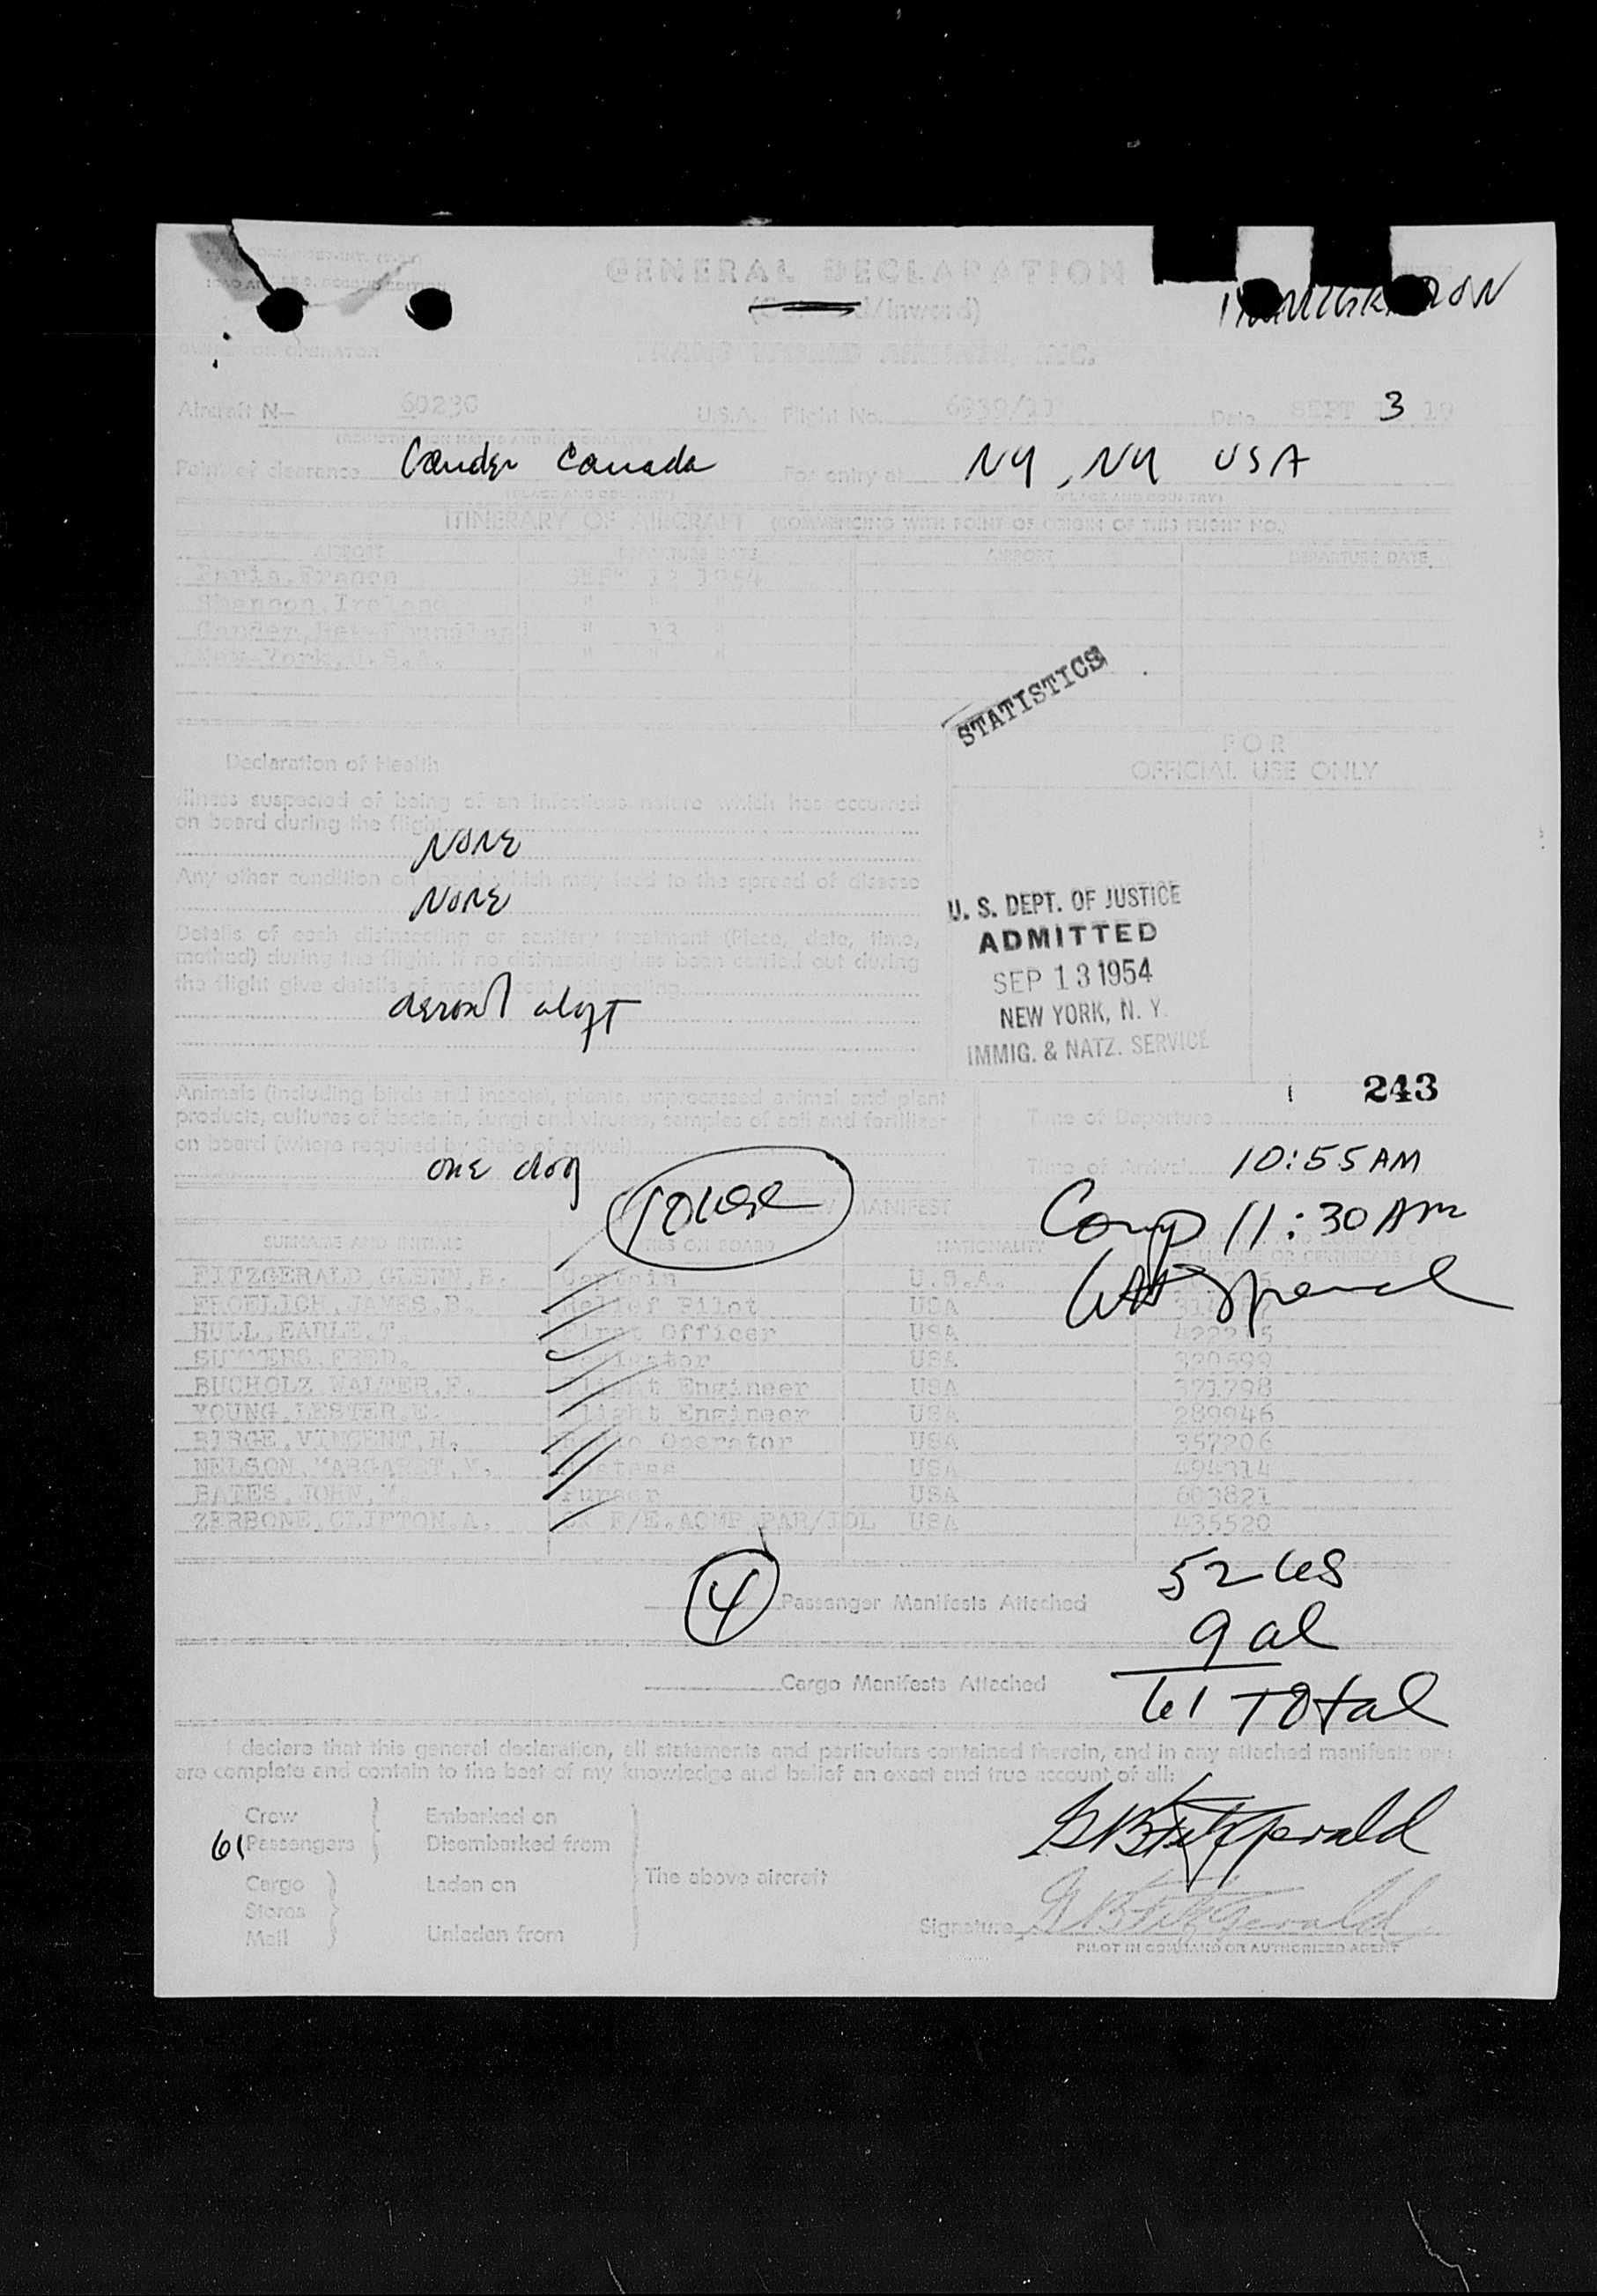 GENERAL DECLARATION
(Outward/Inward)
IMMIGRATION
OWNER OR OPERATOR TRANS WORLD AIRLINES, INC.
Aircraft N— 6023C U.S.A. Flight No. 6939/11 Date SEPT 3 19
Point of clearance Gander Canada For entry at NY, NY USA
(PLACE AND COUNTRY) (PLACE AND COUNTRY)
ITINERARY OF AIRCRAFT (COMMENCING WITH POINT OF ORIGIN OF THIS FLIGHT NO.)
AIRPORT DEPARTURE DATE AIRPORT DEPARTURE DATE
Paris, France SEPT 12 1954
Shannon, Ireland " " "
Gander, Newfoundland " 13 "
New York, U.S.A. " " "
STATISTICS
FOR
OFFICIAL USE ONLY
Declaration of Health
Illness suspected of being of an infectious nature which has occurred
on board during the flight
NONE
Any other condition on board which may lead to the spread of disease
NONE
Details of each disinsecting or sanitary treatment (Place, date, time,
method) during the flight. If no disinsecting has been carried out during
the flight give details of most recent disinsecting
aerosol aloft
U. S. DEPT. OF JUSTICE
ADMITTED
SEP 13 1954
NEW YORK, N. Y.
IMMIG. & NATZ. SERVICE
243
Animals (including birds and insects), plants, unprocessed animal and plant
products, cultures of bacteria, fungi and viruses, samples of soil and fertilizer
on board (where required by State of arrival)
one dog
Time of Departure
Time of Arrival 10:55 AM
Comp 11:30 AM
CREW MANIFEST
SURNAME AND INITIALS DUTIES ON BOARD NATIONALITY LICENSE OR CERTIFICATE
FITZGERALD, GLENN, B. Captain U.S.A.
FROELICH, JAMES, B. Relief Pilot USA
HULL, EARLE, T. First Officer USA 422215
FRED. Navigator USA 320699
BUCHOLZ, WALTER, F. Flight Engineer USA 371798
YOUNG, LESTER, E. Flight Engineer USA 289946
BIRGE, VINCENT, H. Radio Operator USA 357206
NELSON, MARGARET, M. Hostess USA 494314
BATES, JOHN, M. Purser USA 603821
ZERBONE, CLIFTON, A. F/E. ACMF PAR/IDL USA 435520
4 Passenger Manifests Attached
52 US
9 al
61 Total
Cargo Manifests Attached
I declare that this general declaration, all statements and particulars contained therein, and in any attached manifests
are complete and contain to the best of my knowledge and belief an exact and true account of all:
Crew Embarked on
61 Passengers Disembarked from
The above aircraft
Cargo Laden on
Stores
Mail Unladen from
G B Fitzgerald
Signature G B Fitzgerald
PILOT IN COMMAND OR AUTHORIZED AGENT